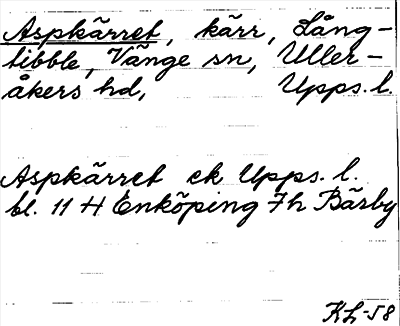 Aspkärret, kärr, Lång-
tibble, Vänge sn, Uller-
åkers hd, Upps. l.
Aspkärret ek Upps. l.
bl. 11 H Enköping 7h Bärby
KL-58